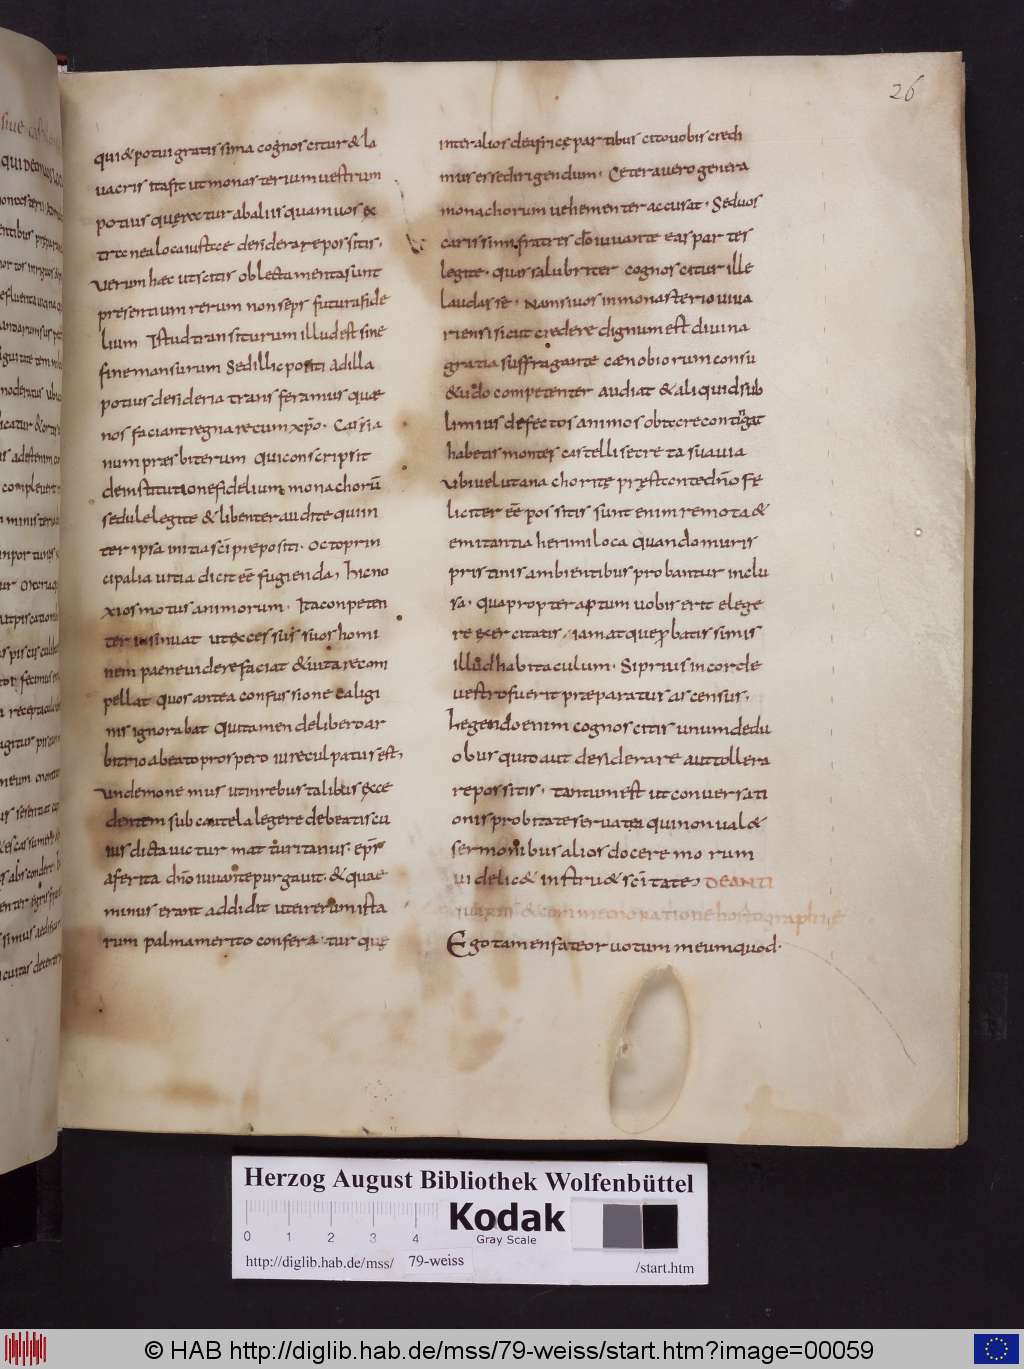 26
qui & potui gratissima cognoscitur & la
uacris ita fit ut monasterium uestrum
potius quęratur ab aliis quam uos ex
tranea loca iuste desiderare possitis.
uerum haec ut scitis oblectamenta sunt
presentium rerum non sęps futura fide
lium Istud transiturum illud est sine
fine mansurum Sed illic positi ad illa
potius desideria transferamus quae
nos faciant regnare cum xp̄o. Cassia
num praesbiterum qui conscripsit
de institutione fidelium monachorū
sedule legite & libenter audite qui in
ter ipsa initia sc̄i prepositi. octo prin
cipalia uitia dicit eē fugienda, hic no
xios motus animorum. Ita conpeten
ter insinuat ut excessus suos homi
nem paene uidere faciat & uitare com
pellat quos antea confussione caligi
nis ignorabat Qui tamen de libero ar
bitrio a beato prospero iure culpatus est,
unde monemus ut in rebus talibus exce
dentem sub cautela legere debeatis cu
ius dicta uictur mattaritanus. epīs
afer ita dn̄o iuuante purgauit. & quae
minus erant addidit ut ei rerum ista
rum palma merito conferatur que
inter alios de africę partibus cito uobis credi
mus esse dirigendum. Cetera uero genera
monachorum uehementer accusat. Sed uos
carissimi fratres dō iuuante eas partes
legite. quas salubriter cognoscitur ille
laudasse. Nam si uos in monasterio uiua
riensi sicut credere dignum est diuina
gratia suffragante caenobiorum consu
&udo competenter audiat & aliquid sub
limius defectos animos obtare contigat
habetis montes castelli secreta suauia
ubi uelut anachoritę pręstante dn̄o fe
liciter eē possitis sunt enim remota &
emitantia herimi loca quando muris
pristinis ambientibus probantur inclu
sa. quapropter aptum uobis erit elege
re exercitatis iam atque probatissimis
illud habitaculum. Si prius in corde
uestro fuerit praeparatus ascensus.
Legendo enim cognoscitis unum de du
obus quid aut desiderare aut tollera
re possitis. tantum est ut conuersati
onis probitate seruata qui non ual&
sermonibus alios docere morum
uidelic& instru& sc̄itate, DE ANTI
quariis & commemoratione hortographiae
Ego tamen fateor uotum meum quod.
Herzog August Bibliothek Wolfenbüttel
Kodak
Gray Scale
0 1 2 3 4
http://diglib.hab.de/mss/ 79-weiss /start.htm
© HAB http://diglib.hab.de/mss/79-weiss/start.htm?image=00059